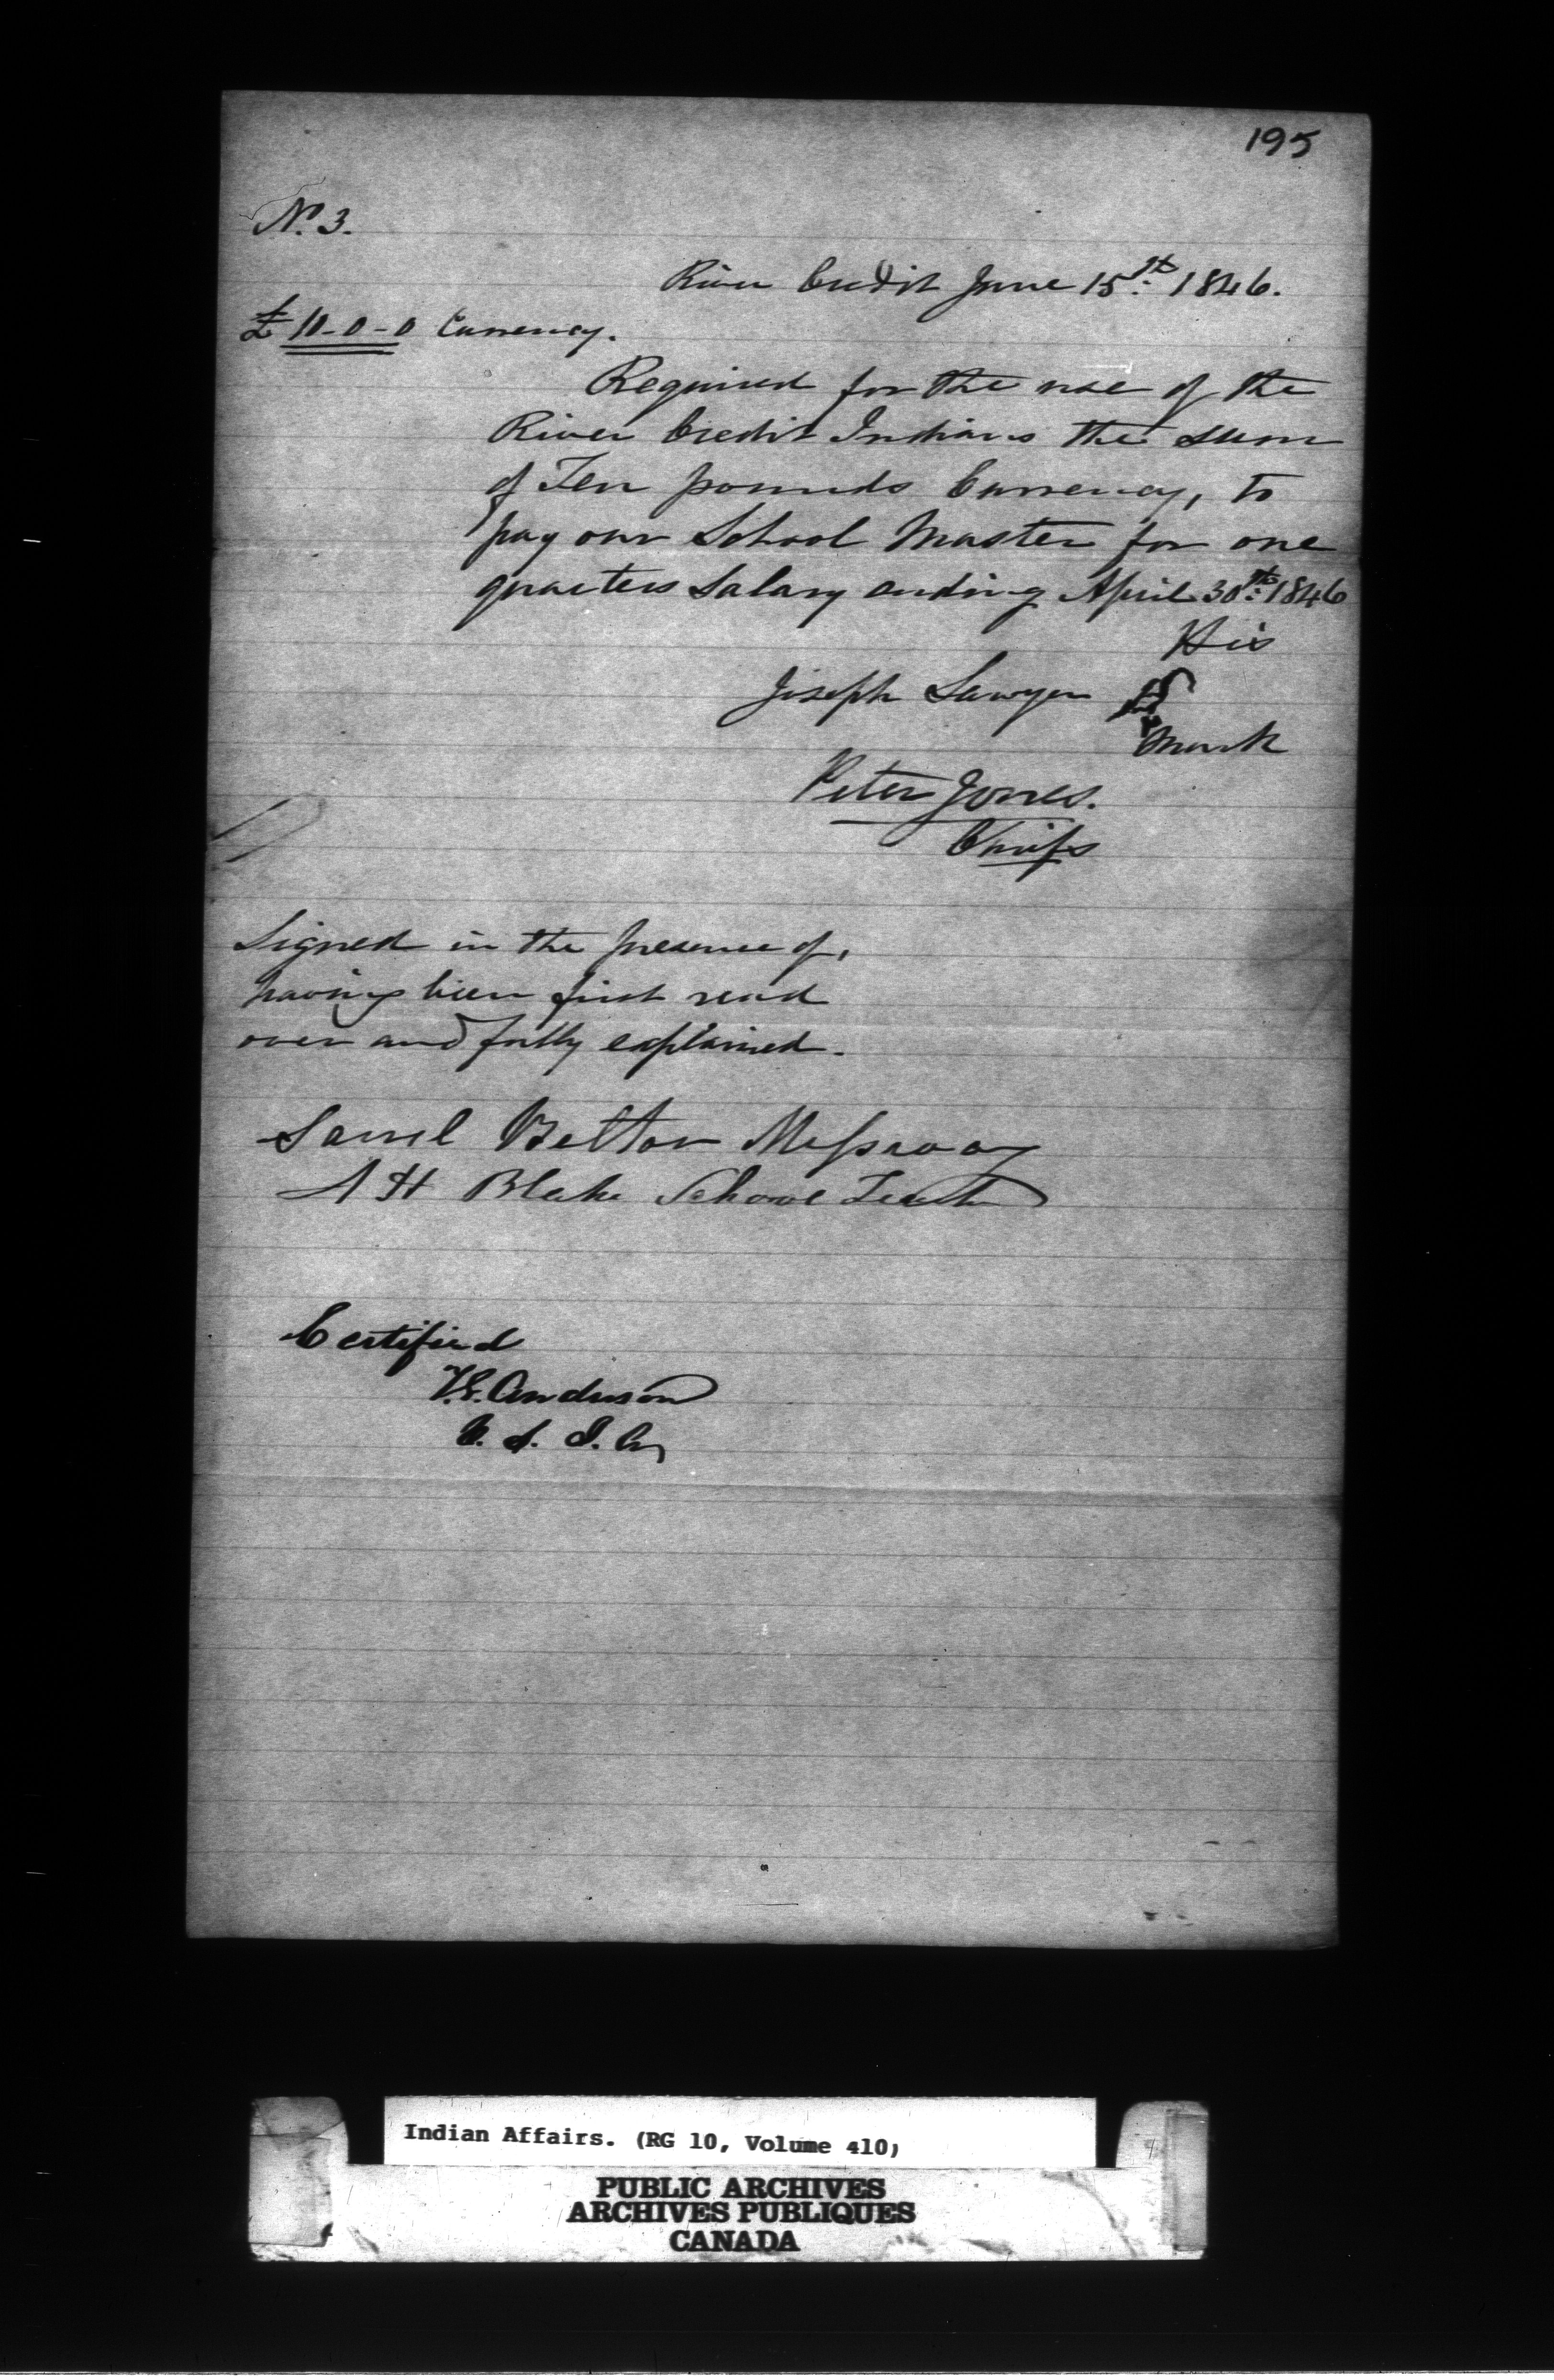 195
No. 3.
River Credit June 15th 1846.
£ 10-0-0 Currency.
Required for the use of the
River Credit Indians the sum
of Ten pounds Currency, to
pay our School Master for one
quarters Salary ending April 30th 1846
His
Joseph Sawyer
Mark
Peter Jones.
Chiefs
Signed in the presence of,
having been first read
over and fully explained.
Belton
A H Blake School
Certified
Anderson
Indian Affairs. (RG 10, Volume 410)
PUBLIC ARCHIVES
ARCHIVES PUBLIQUES
CANADA